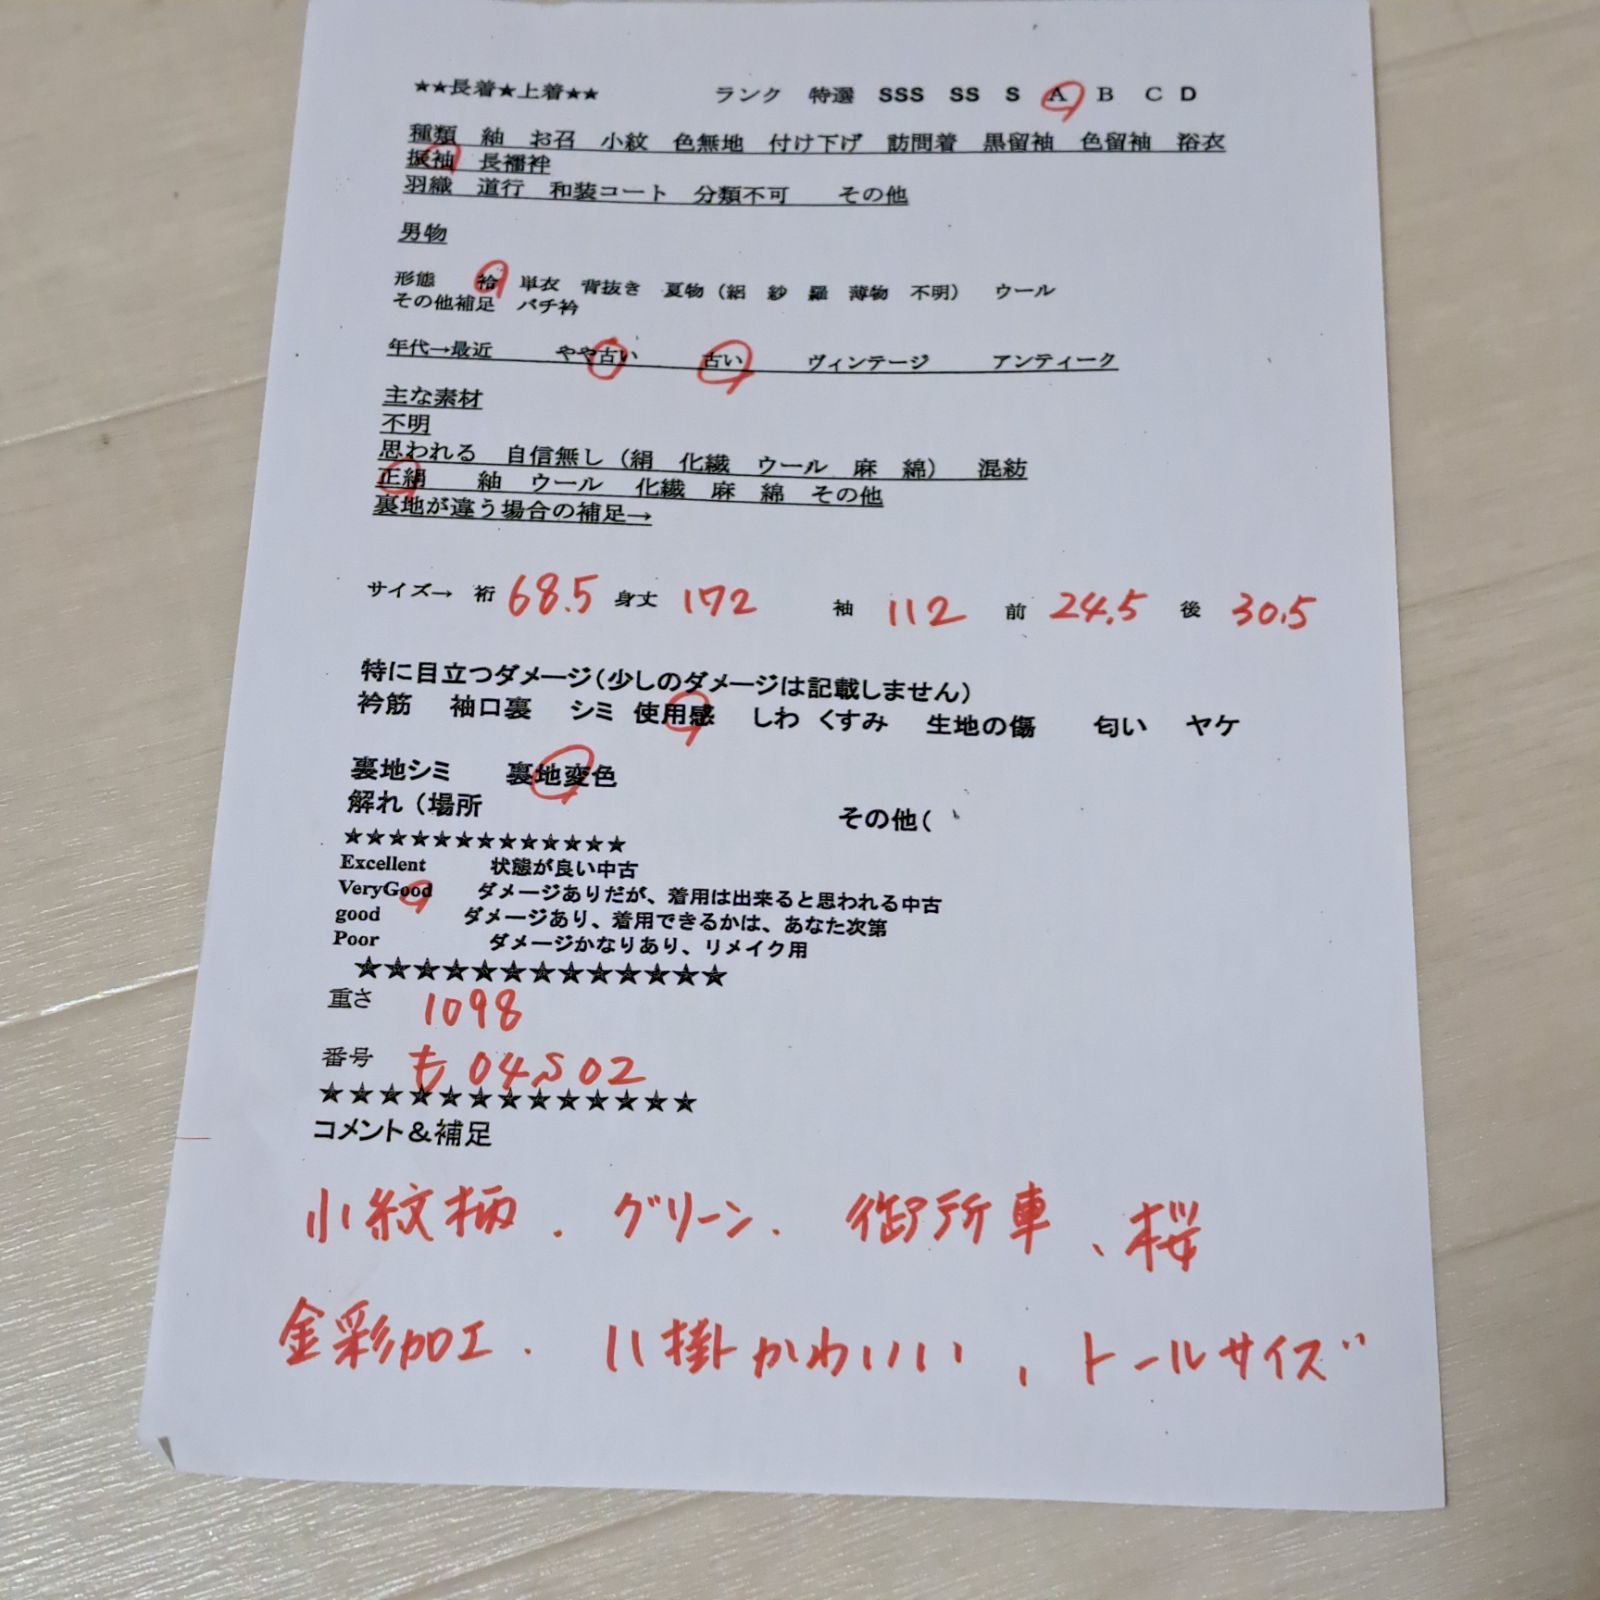 ★★長着★上着★★　ランク　特選　SSS　SS　S　A　B　C　D
種類　紬　お召　小紋　色無地　付け下げ　訪問着　黒留袖　色留袖　浴衣
振袖　長襦袢
羽織　道行　和装コート　分類不可　その他
男物
形態　袷　単衣　背抜き　夏物（絽　紗　羅　薄物　不明）　ウール
その他補足　バチ衿
年代→最近　やや古い　古い　ヴィンテージ　アンティーク
主な素材
不明
思われる　自信無し（絹　化繊　ウール　麻　綿）　混紡
正絹　紬　ウール　化繊　麻　綿　その他
裏地が違う場合の補足→
サイズ→　裄 68.5 身丈 172　袖 112　前 24.5　後 30.5
特に目立つダメージ（少しのダメージは記載しません）
衿筋　袖口裏　シミ　使用感　しわ　くすみ　生地の傷　匂い　ヤケ
裏地シミ　裏地変色
解れ（場所　その他（
★★★★★★★★★★★★★
Excellent　状態が良い中古
VeryGood　ダメージありだが、着用は出来ると思われる中古
good　ダメージあり、着用できるかは、あなた次第
Poor　ダメージかなりあり、リメイク用
★★★★★★★★★★★★★
重さ　1098
番号　も04502
★★★★★★★★★★★★★
コメント＆補足
小紋柄．グリーン．御所車、桜
金彩加工．八掛かわいい、トールサイズ